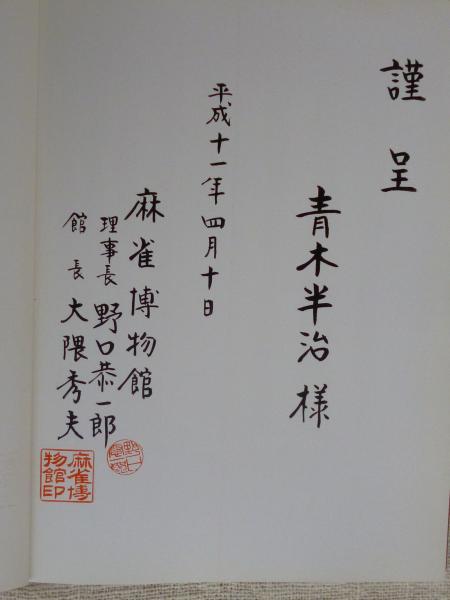 謹呈
青木半治様
平成十一年四月十日
麻雀博物館
理事長 野口恭一郎
館長 大隈秀夫
麻雀博
物館印